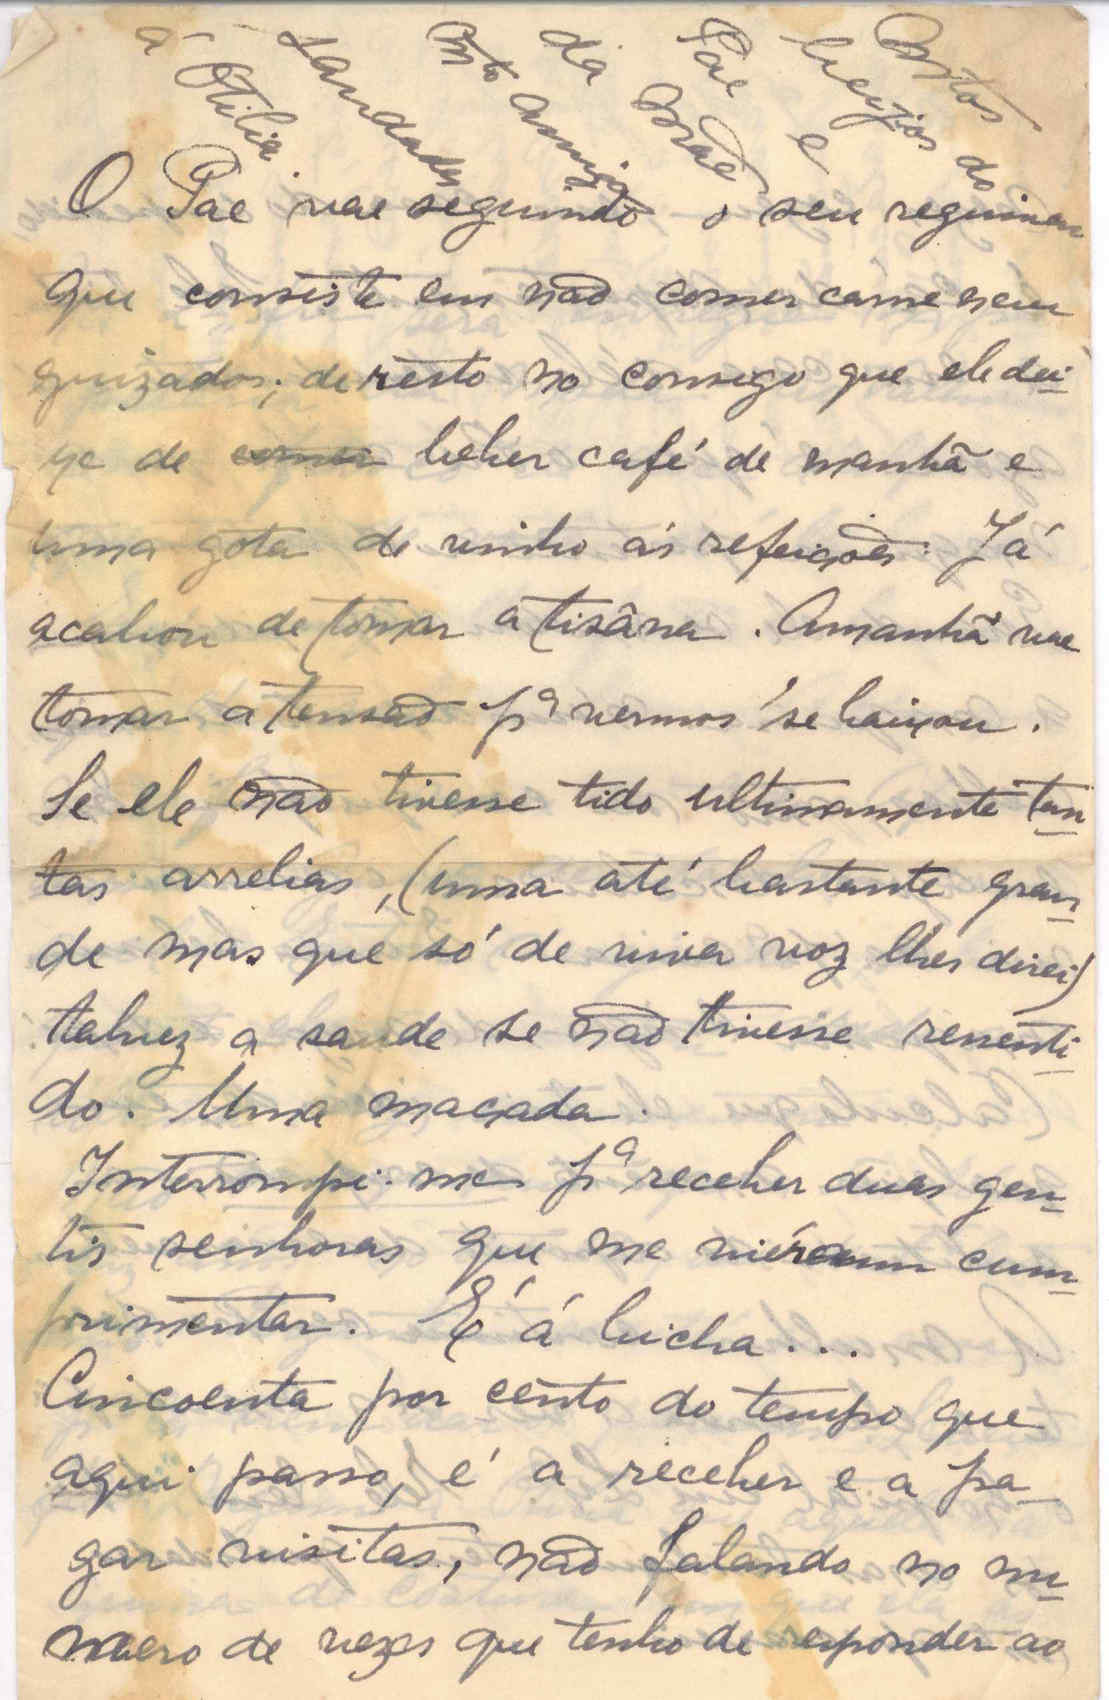 Muitos
beijos do
Pae e
da Mãe
mto amiga
saudades
á Otilia.
O Pae vae seguindo o seu reguimen
que consiste em não comer carne nem
guizados; de resto no consigo que ele dei-
xe de comer beber café de manhã e
uma gota de vinho ás refeições. Já
acabou de tomar a tisâna. Amanhã vae
tomar a tensão pª vermos se baixou.
Se ele não tivesse tido ultimamente tan-
tas arrelias, (uma até bastante gran-
de mas que só de viva voz lhes direi)
talvez a saude se não tivesse resenti-
do. Uma maçada.
Interrompi-me pª receber duas gen-
tis senhoras que me viéram cum-
primentar. É á bicha...
Cincoenta por cento do tempo que
aqui passo, é a receber e a pa-
gar visitas, não falando no nu-
mero de vezes que tenho de responder ao